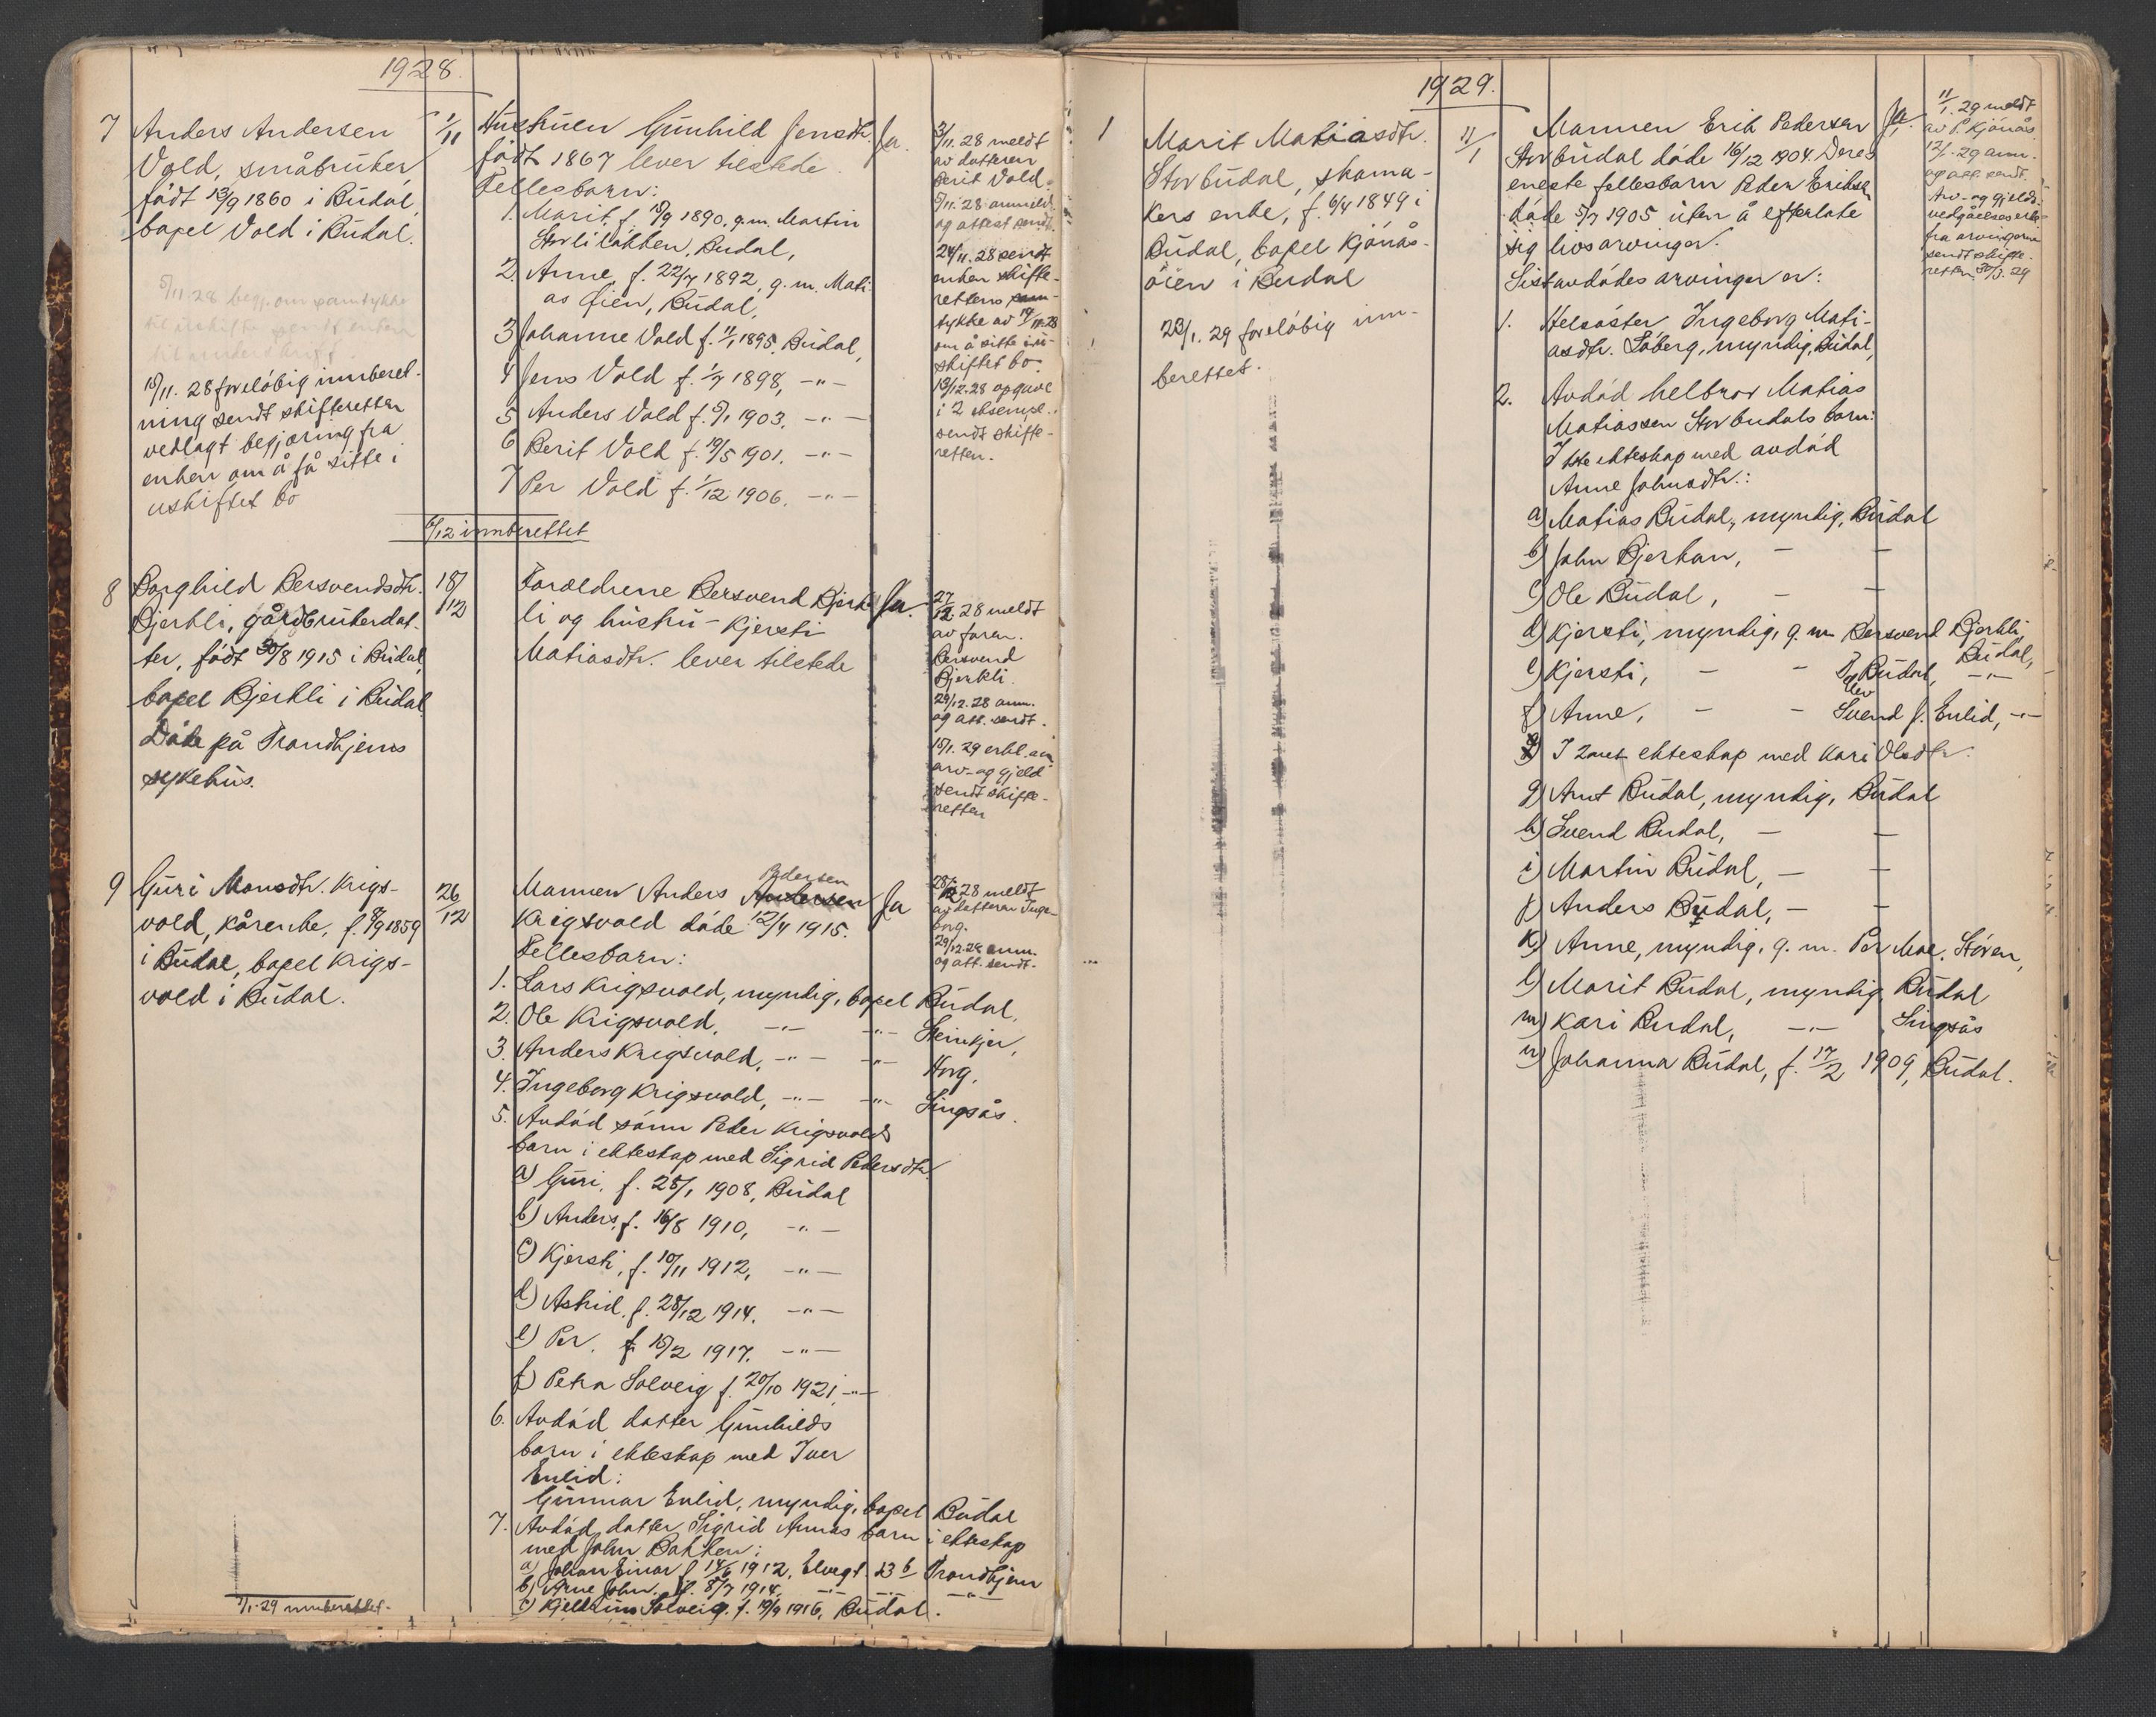 1928.
7 Anders Andersen
Vold, småbruker,
født 13/9 1860 i Budal,
bopel Vold i Budal.
5/11.28 begj. om samtykke
15/11. 28 foreløbig innberet-
ning sendt skifteretten
vedlagt begjæring fra
enken om å få sitte i
uskiftet bo
1/11
Hustruen Gunhild Jensdtr.
født 1867 lever tilstede.
Fellesbarn:
1. Marit, f. 15/9 1890, g.m. Martin
Storlibakken, Budal,
2. Anne, f. 22/7 1892, g. m. Mati-
as Øien, Budal,
3 Johanne Vold f. 11/1 1895, Budal,
4 Jens Vold f. 1/7 1898, -"-
5 Anders Vold f. 5/1 1903, -"-
6 Berit Vold f. 19/5 1901. -"-
7 Per Vold f. 1/12 1906. -"-
6/12 innberettet
Ja.
3/11. 28 meldt
av datteren
Berit Vold.
5/11. 28 anmeld.
og attest sendt.
24/11. 28 sendt
enken skifte-
rettens sam-
tykke av 19/11.28
om å sitte i u-
skiftet bo.
13/12.28 opgave
i 2 eksempl.
sendt skifte-
retten.
8 Borghild Bersvendsdtr.
Bjerkli, gårdbrukerdat-
ter, født 30/8 1915 i Budal,
bopel Bjerkli i Budal.
Døde på Trondhjems
sykehus.
18/12
Foreldrene Bersvend Bjerk-
li og hustru - Kjersti
Matiasdtr. lever tilstede
Ja.
27/12. 28 meldt
av faren
Bersvend
Bjerkli.
29/12. 28 anm.
og att. sendt.
15/1. 29 erkl. om
arv- og gjeld
sendt skifte-
retten
9 Guri Monsdtr. Krigs-
vold, kårenke, f. 8/9 1859
i Budal, bopel Krigs-
vold i Budal.
26/12
Mannen Anders Andersen Pedersen
Krigsvold døde 12/4 1915.
Fellesbarn:
1. Lars Krigsvold, myndig, bopel Budal,
2. Ole Krigsvold, -"- -"- Steinkjer,
3. Anders Krigsvold, -"- -"- Horg,
4. Ingeborg Krigsvold, -"- -"- Singsås.
5. Avdød sønn Peder Krigsvolds
barn i ekteskap med Sigrid Pedersdtr.
a) Guri, f. 28/1 1908, Budal
b) Anders, f. 16/8 1910, -"-
c) Kjersti, f. 10/11 1912, -"-
d) Astrid, f. 28/12 1914. -"-
e) Per. f. 15/2 1917. -"-
f) Petra Solveig f. 20/10 1921, -"-
6. Avdød datter Gunhilds
barn i ekteskap med Iver
Enlid:
Gunnar Enlid, myndig, bopel Budal
7. Avdød datter Sigrid Annas barn i ekteskap
med John Bakken:
a) Johan Einar f. 14/6 1912, Elvegt. 23 b Trondhjem
b) Arne John. f. 8/7 1914. -"- -"- -"-
c) Solveig. f. 19/9 1916, Budal.
Ja
28/12 28 meldt
av datteren Inge-
borg.
29/12.28 anm.
og att. sendt.
7/1.29 innberettet.
1929.
1 Marit Matiasdtr.
Storbudal, skoma-
kers enke, f. 6/4 1849 i
Budal, bopel Kjønås-
øien i Budal
23/1. 29 foreløbig inn-
berettet.
11/1
Mannen Erik Pedersen
Storbudal døde 16/12 1904. Deres
eneste fellesbarn Peder Eriksen
døde 5/7 1905 uten å efterlate
sig livsarvinger.
Sistavdødes arvinger er:
1. Helsøster Ingeborg Mati-
asdtr. Løberg, myndig, Budal,
2. Avdød helbror Matias
Matiassen Storbudals barn:
I 1ste ekteskap med avdød
Anne Johnsdtr.:
a) Matias Budal, myndig, Budal
b) John Bjerkan, - -
c) Ole Budal, - -
d) Kjersti, myndig, g. m. Bersvend Bjerkli,
Budal,
e) Kjersti, - - Budal, -"-
f) Anne, - - Svend J. Enlid, -"-
I 2net ekteskap med Kari Olsdtr.
g) Arnt Budal, myndig, Budal
h) Svend Budal, - -
i) Martin Budal, - -
j) Anders Budal, - -
k) Anne, myndig, g. m. Per Moe, Støren,
l) Marit Budal, myndig, Budal
m) Kari Budal, -"- Singsås
n) Johanna Budal, f. 17/2 1909, Budal.
Ja.
11/1. 29 meldt
av P. Kjønås.
12/1. 29 anm.
og att. sendt.
Arv- og gjelds-
vedgåelseserkl.
fra arvingerne
sendt skifte-
retten